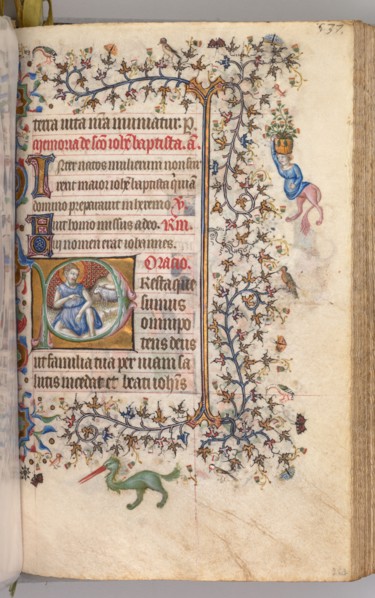 537.
terra uita nr̄a muniatur. p.
Memoria de sc̄o ioh̄e baptista. a.
Inter natos mulierum non sur
rexit maior ioh̄e baptista qui uiā
domino preparauit in heremo. V
Fuit homo missus a deo. Rm̄.
Cui nomen erat iohannes.
Oratio.
Presta que
sumus
omnipo
tens deus
ut familia tua per uiam sa
lutis incedat et beati ioh̄is